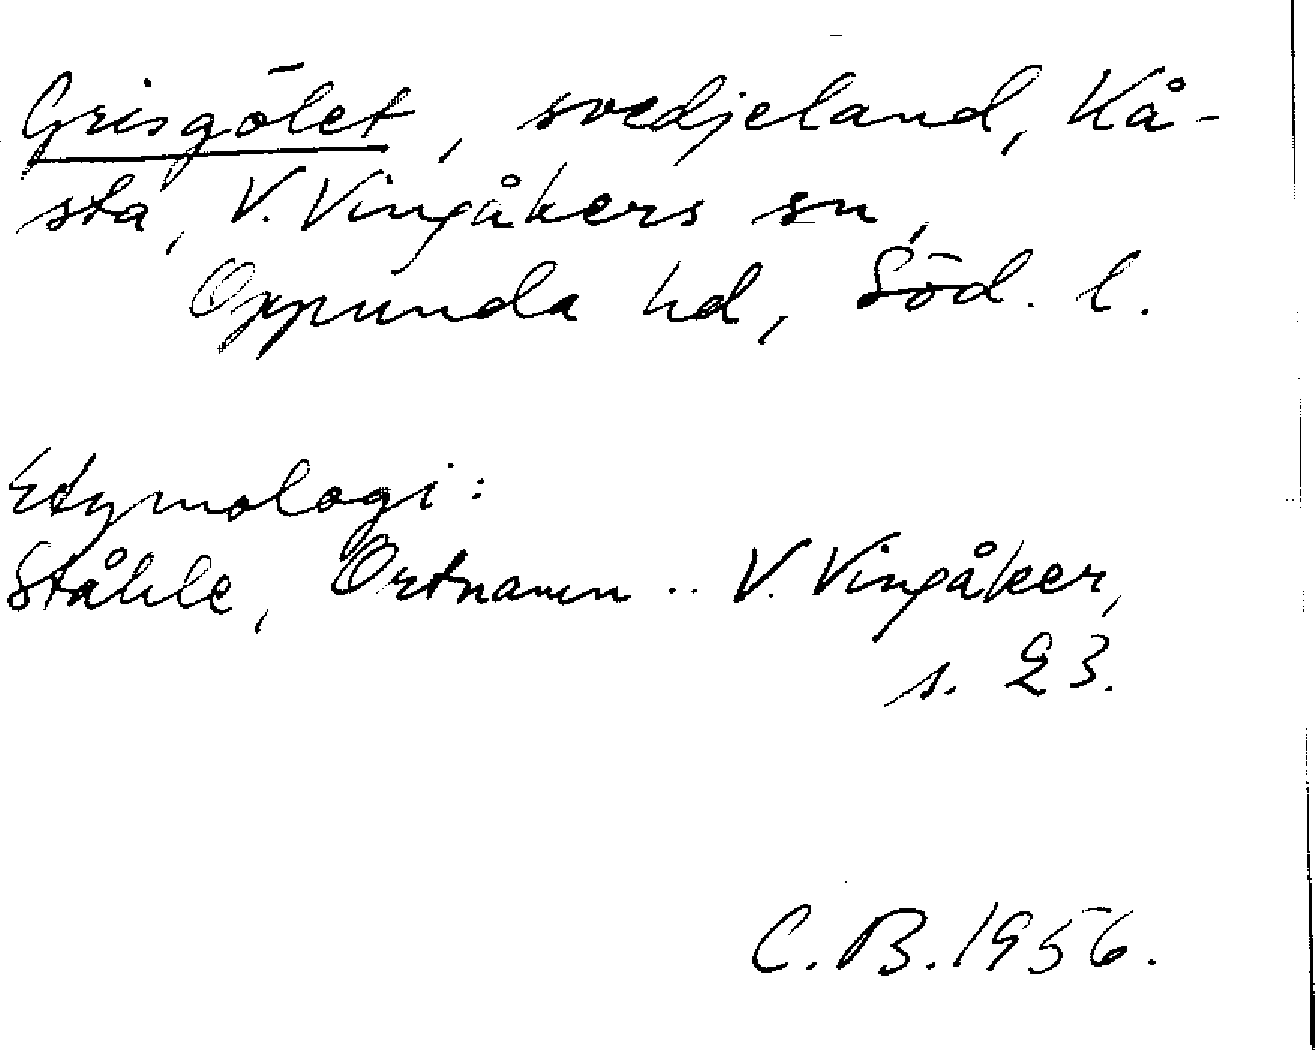 Grisgölet, svedjeland, Kå-
sta, V. Vingåkers sn,
Oppunda hd, Söd. l.
Etymologi:
Ståhle, Ortnamn .. V. Vingåker,
s. 23.
C. B. 1956.